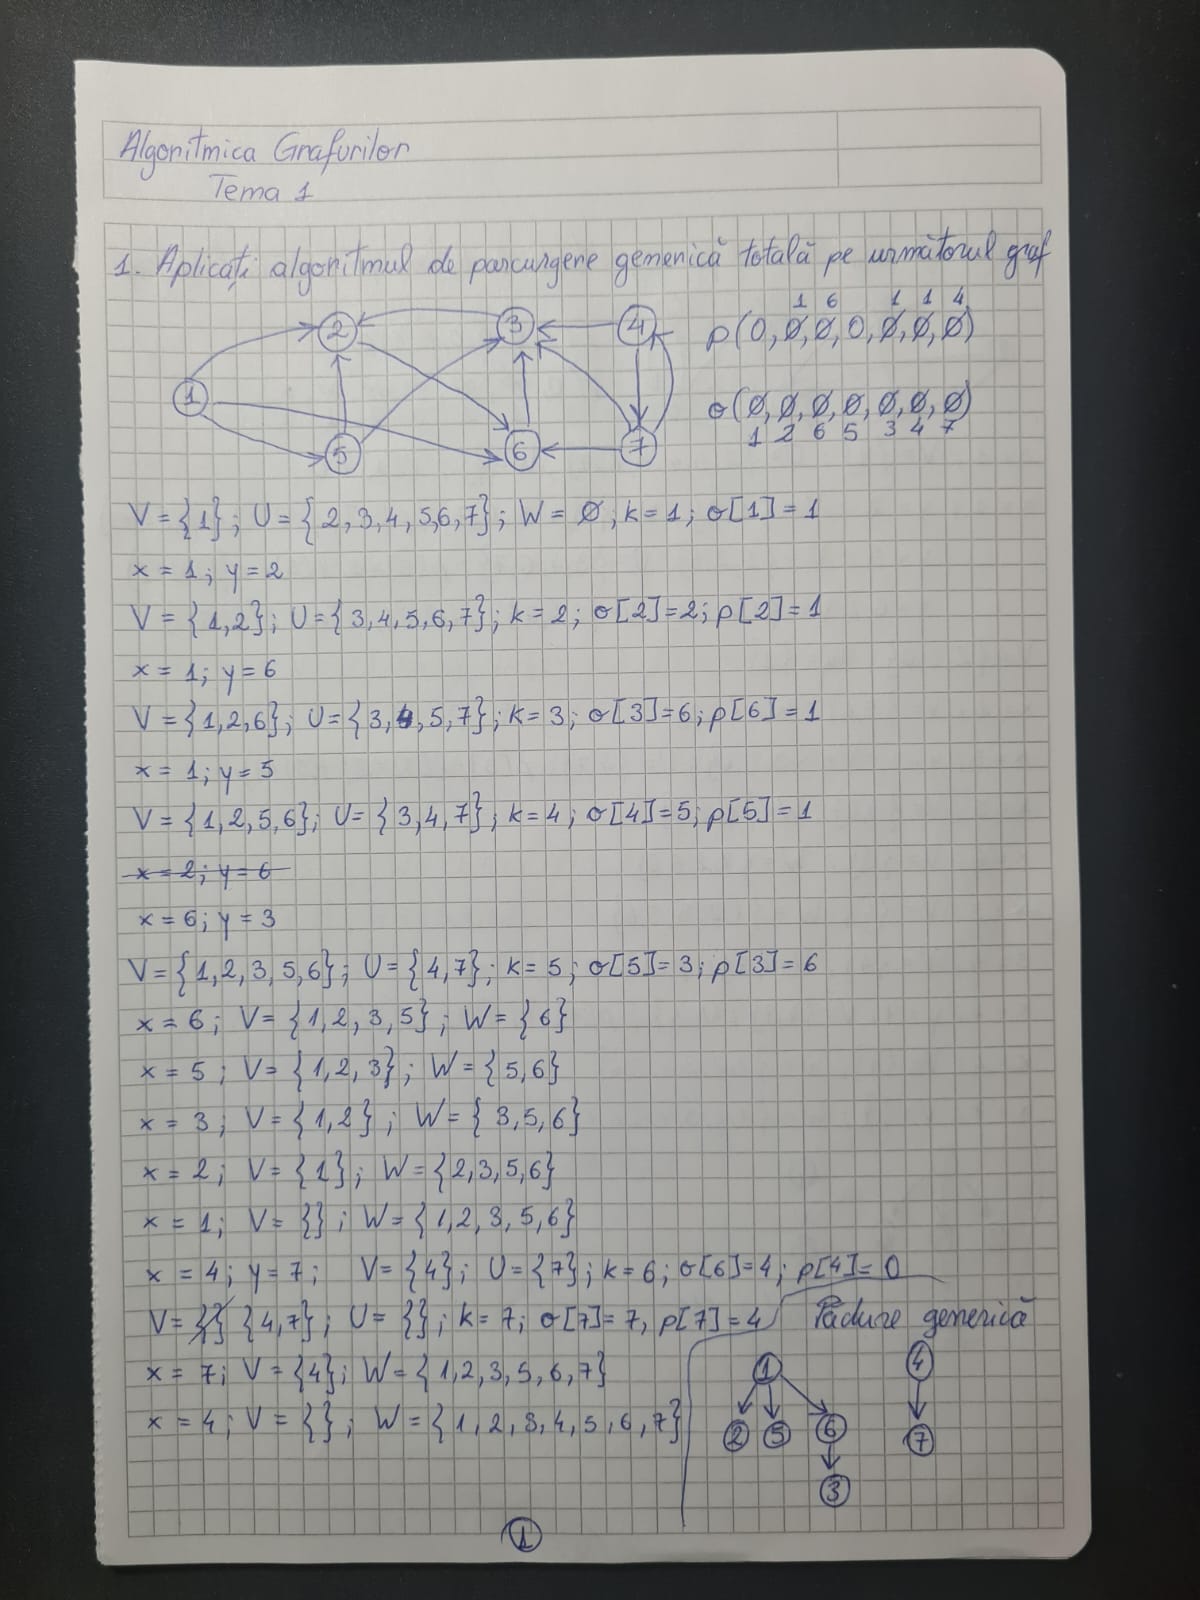 Algoritmica Grafurilor
Tema 1
1. Aplicați algoritmul de parcurgere generică totală pe următorul graf
1 6 1 1 4
2 3 4
p(0,0,0,0,0,0,0)
1
o(0,0,0,0,0,0,0)
1 2 6 5 3 4 7
5 6 7
V={1}; U={2,3,4,5,6,7}; W=Ø; k=1; o[1]=1
x=1; y=2
V={1,2}; U={3,4,5,6,7}; k=2; o[2]=2; p[2]=1
x=1; y=6
V={1,2,6}; U={3,4,5,7}; k=3; o[3]=6; p[6]=1
x=1; y=5
V={1,2,5,6}; U={3,4,7}; k=4; o[4]=5; p[5]=1
x=2; y=6
x=6; y=3
V={1,2,3,5,6}; U={4,7}; k=5; o[5]=3; p[3]=6
x=6; V={1,2,3,5}; W={6}
x=5; V={1,2,3}; W={5,6}
x=3; V={1,2}; W={3,5,6}
x=2; V={1}; W={2,3,5,6}
x=1; V={}; W={1,2,3,5,6}
x=4; y=7; V={4}; U={7}; k=6; o[6]=4; p[4]=0
V={} {4,7}; U={}; k=7; o[7]=7, p[7]=4
Pădure generică
x=7; V={4}; W={1,2,3,5,6,7}
1 4
x=4; V={}; W={1,2,3,4,5,6,7}
2 5 6 7
3
1